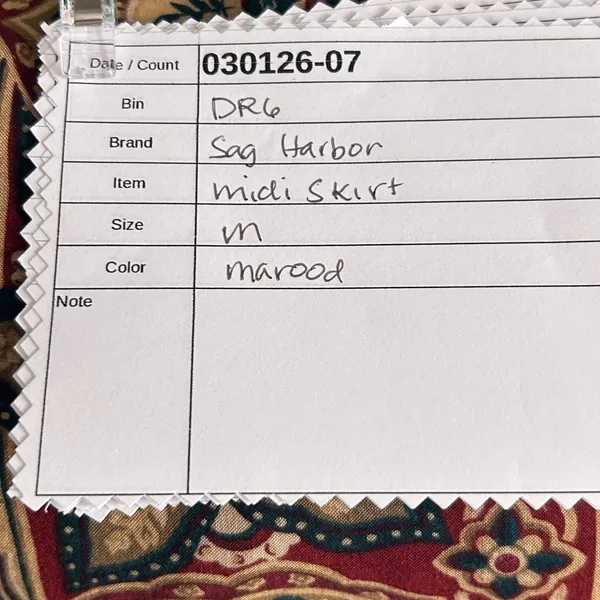 Date / Count 030126-07
Bin DR6
Brand Sag Harbor
Item midi Skirt
Size m
Color marood
Note